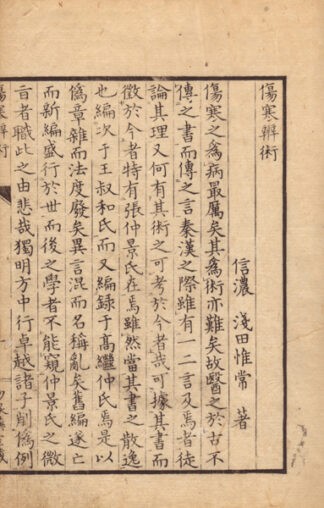 傷寒辨術
信濃 淺田惟常 著
傷寒之為病最厲矣其為術亦難矣故醫之於古不
傳之書而傳之言秦漢之際雖有一二言及焉者徒
論其理又何有其術之可考於今者哉可據其書而
徵於今者特有張仲景氏在焉雖然當其書之散逸
也編次于王叔和氏而又編録于高繼仲氏焉是以
偽章雜而法度廢矣異言混而名稱亂矣舊編遂亡
而新編盛行於世而後之學者不能窺仲景氏之微
旨者職此之由悲哉獨明方中行卓越諸子削偽例
傷寒辨術